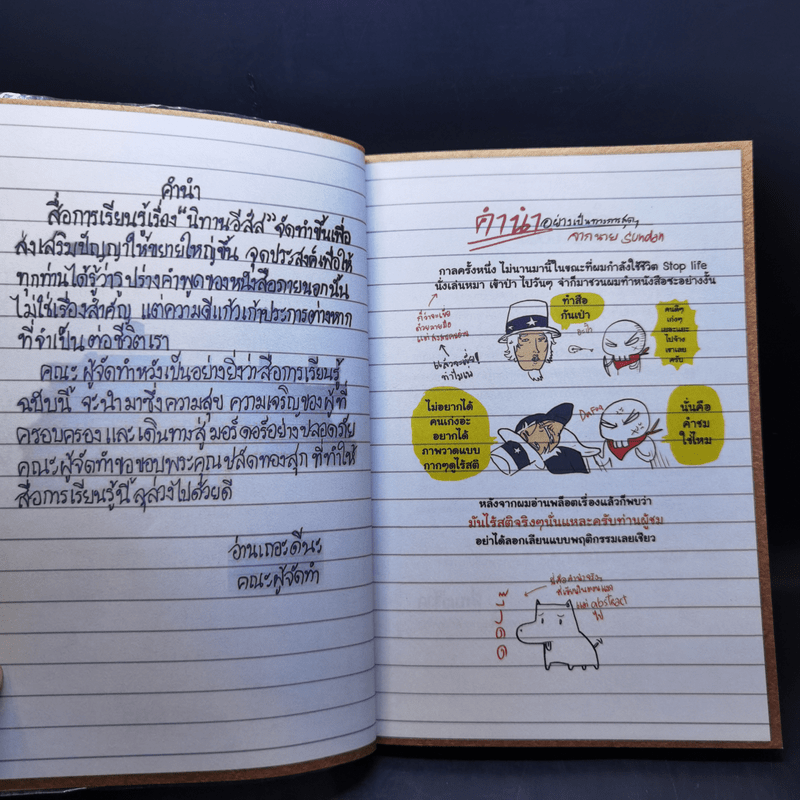 คำนำ
สื่อการเรียนรู้เรื่อง "นิทานอีสัส" จัดทำขึ้นเพื่อ
ส่งเสริมปัญญาให้ขยายใหญ่ขึ้น จุดประสงค์เพื่อให้
ทุกท่านได้รู้ว่ารูปร่างคำพูดของหนังสือภายนอกนั้น
ไม่ใช่เรื่องสำคัญ แต่ความดีแก้วเก้าประการต่างหาก
ที่จำเป็นต่อชีวิตเรา
คณะผู้จัดทำหวังเป็นอย่างยิ่งว่าสื่อการเรียนรู้
ฉบับนี้ จะนำมาซึ่งความสุข ความเจริญของผู้ที่
ครอบครอง และเดินทางสู่มอร์ดอร์อย่างปลอดภัย
คณะผู้จัดทำขอขอบพระคุณปลัดทองสุก ที่ทำให้
สื่อการเรียนรู้นี้ลุล่วงไปด้วยดี
อ่านเถอะดีนะ
คณะผู้จัดทำ
คำนำ อย่างเป็นทางการสุดๆ
จากนาย Sundan
กาลครั้งหนึ่ง ไม่นานมานี้ในขณะที่ผมกำลังใช้ชีวิต Stop life
นั่งเล่นหมา เข้าป่า ไปวันๆ จ่าก็มาชวนผมทำหนังสือซะอย่างงั้น
ทำสือ
กันเป่า
คนดีๆ
เก่งๆ
เยอะแยะ
ไปจ้าง
เขาเลย
ครับ
ไม่อยากได้
คนเก่งอ่ะ
อยากได้
ภาพวาดแบบ
กากๆดูไร้สติ
นั่นคือ
คำชม
ใช่ไหม
หลังจากผมอ่านพล็อตเรื่องแล้วก็พบว่า
มันไร้สติจริงๆนั่นแหละครับท่านผู้ชม
อย่าได้ลอกเลียนแบบพฤติกรรมเลยเชียว
abstract